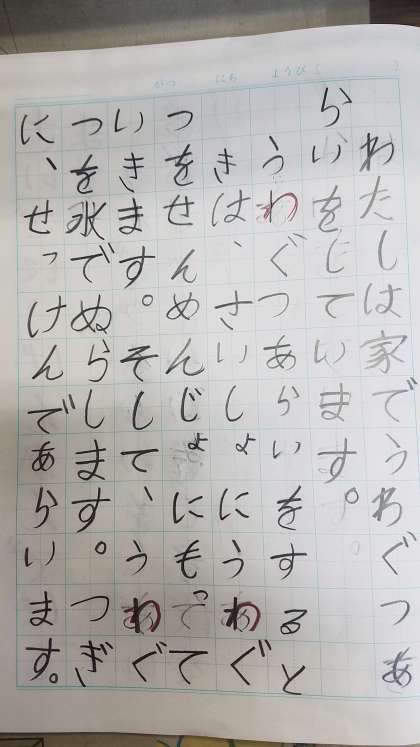 がつ　にち　ようび
わたしは家でうわぐつあ
らいをしています。
うわぐつあらいをすると
きは、さいしょにうわぐ
つをせんめんじょにもって
いきます。そして、うわぐ
つを水でぬらします。つぎ
に、せっけんであらいます。